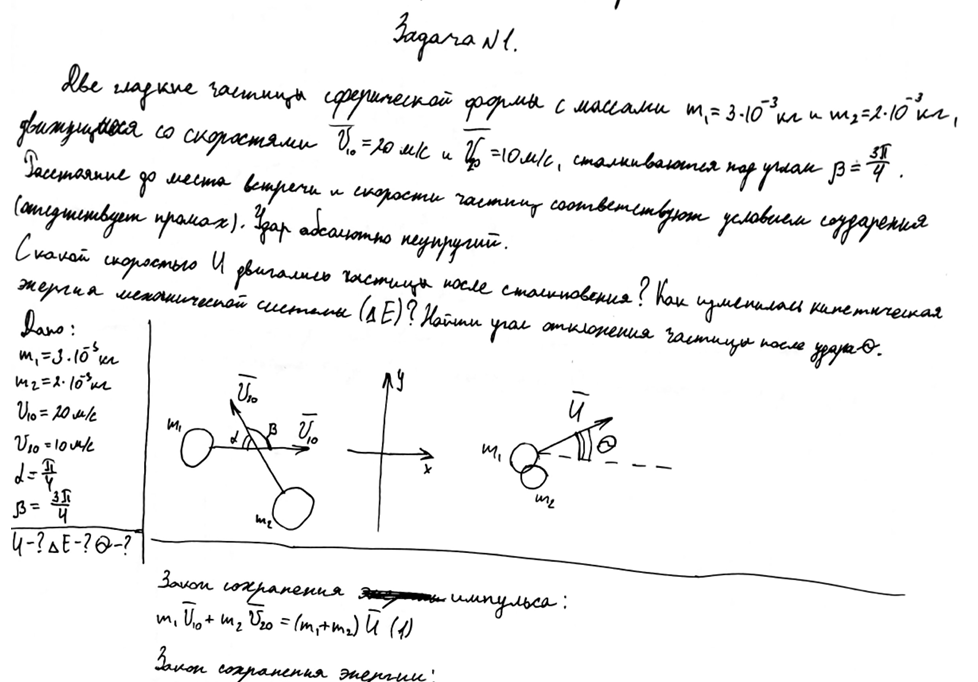 Задача №1.
Две гладкие частицы сферической формы с массами m₁=3·10⁻³ кг и m₂=2·10⁻³ кг,
движущиеся со скоростями V̅₁₀=20 м/с и V̅₂₀=10 м/с, сталкиваются под углом β=3π/4.
Расстояние до места встречи и скорости частиц соответствуют условием соударения
(отсутствует промах). Удар абсолютно неупругий.
С какой скоростью U двигались частицы после столкновения? Как изменилась кинетическая
энергия механической системы (ΔE)? Найти угол отклонения частицы после удара Θ.
Дано:
m₁=3·10⁻³ кг
m₂=2·10⁻³ кг
V₁₀=20 м/с
V₂₀=10 м/с
α=π/4
β=3π/4
U-? ΔE-? Θ-?
V̅₂₀
m₁ α β V̅₁₀
m₂
y
x
U̅
m₁ Θ
m₂
Закон сохранения импульса:
m₁V̅₁₀+m₂V̅₂₀=(m₁+m₂)U̅ (1)
Закон сохранения энергии: